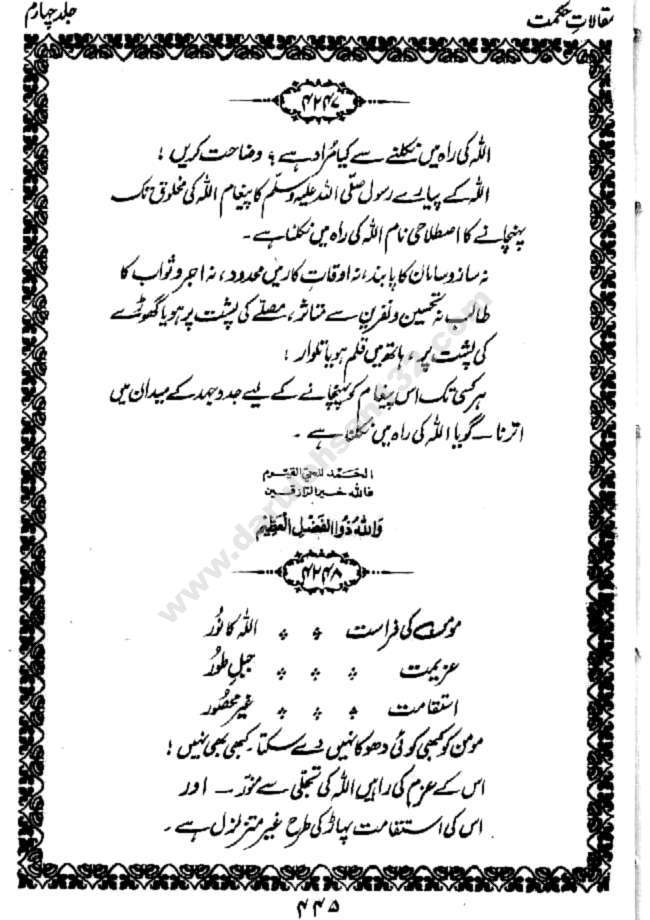 مقالاتِ حکمت جلد چہارم
۴۲۴۷
اللہ کی راہ میں نکلنے سے کیا مراد ہے ؟ وضاحت کریں !
اللہ کے پیارے رسول صلّی اللہ علیہ وسلّم کا پیغام اللہ کی مخلوق تک
پہنچانے کا اصطلاحی نام اللہ کی راہ میں نکلنا ہے ۔
نہ ساز و سامان کا پابند ، نہ اوقاتِ کار میں محدود ، نہ اجر و ثواب کا
طالب نہ تحسین و نفرین سے متاثر ، مصلّے کی پشت پر ہو یا گھوڑے
کی پشت پر ، ہاتھ میں قلم ہو یا تلوار !
ہر کسی تک اس پیغام کو پہنچانے کے لیے جدوجہد کے میدان میں
اترنا ــ گویا اللہ کی راہ میں نکلنا ہے ۔
الحَمد للحیّ القیّوم
فاللہ خیر الرّازقین
وَاللہُ ذُو الفَضْلِ الْعَظِیْم
۴۲۴۸
مومن کی فراست ٭ ٭ اللہ کا نُور
عزیمت ٭ ٭ ٭ جبلِ طُور
استقامت ٭ ٭ ٭ غیر محصُور
مومن کو کبھی کوئی دھوکا نہیں دے سکتا ۔ کبھی بھی نہیں !
اس کے عزم کی راہیں اللہ کی تجلّی سے منوّر ــ اور
اس کی استقامت پہاڑ کی طرح غیر متزلزل ہے ۔
۴۴۵